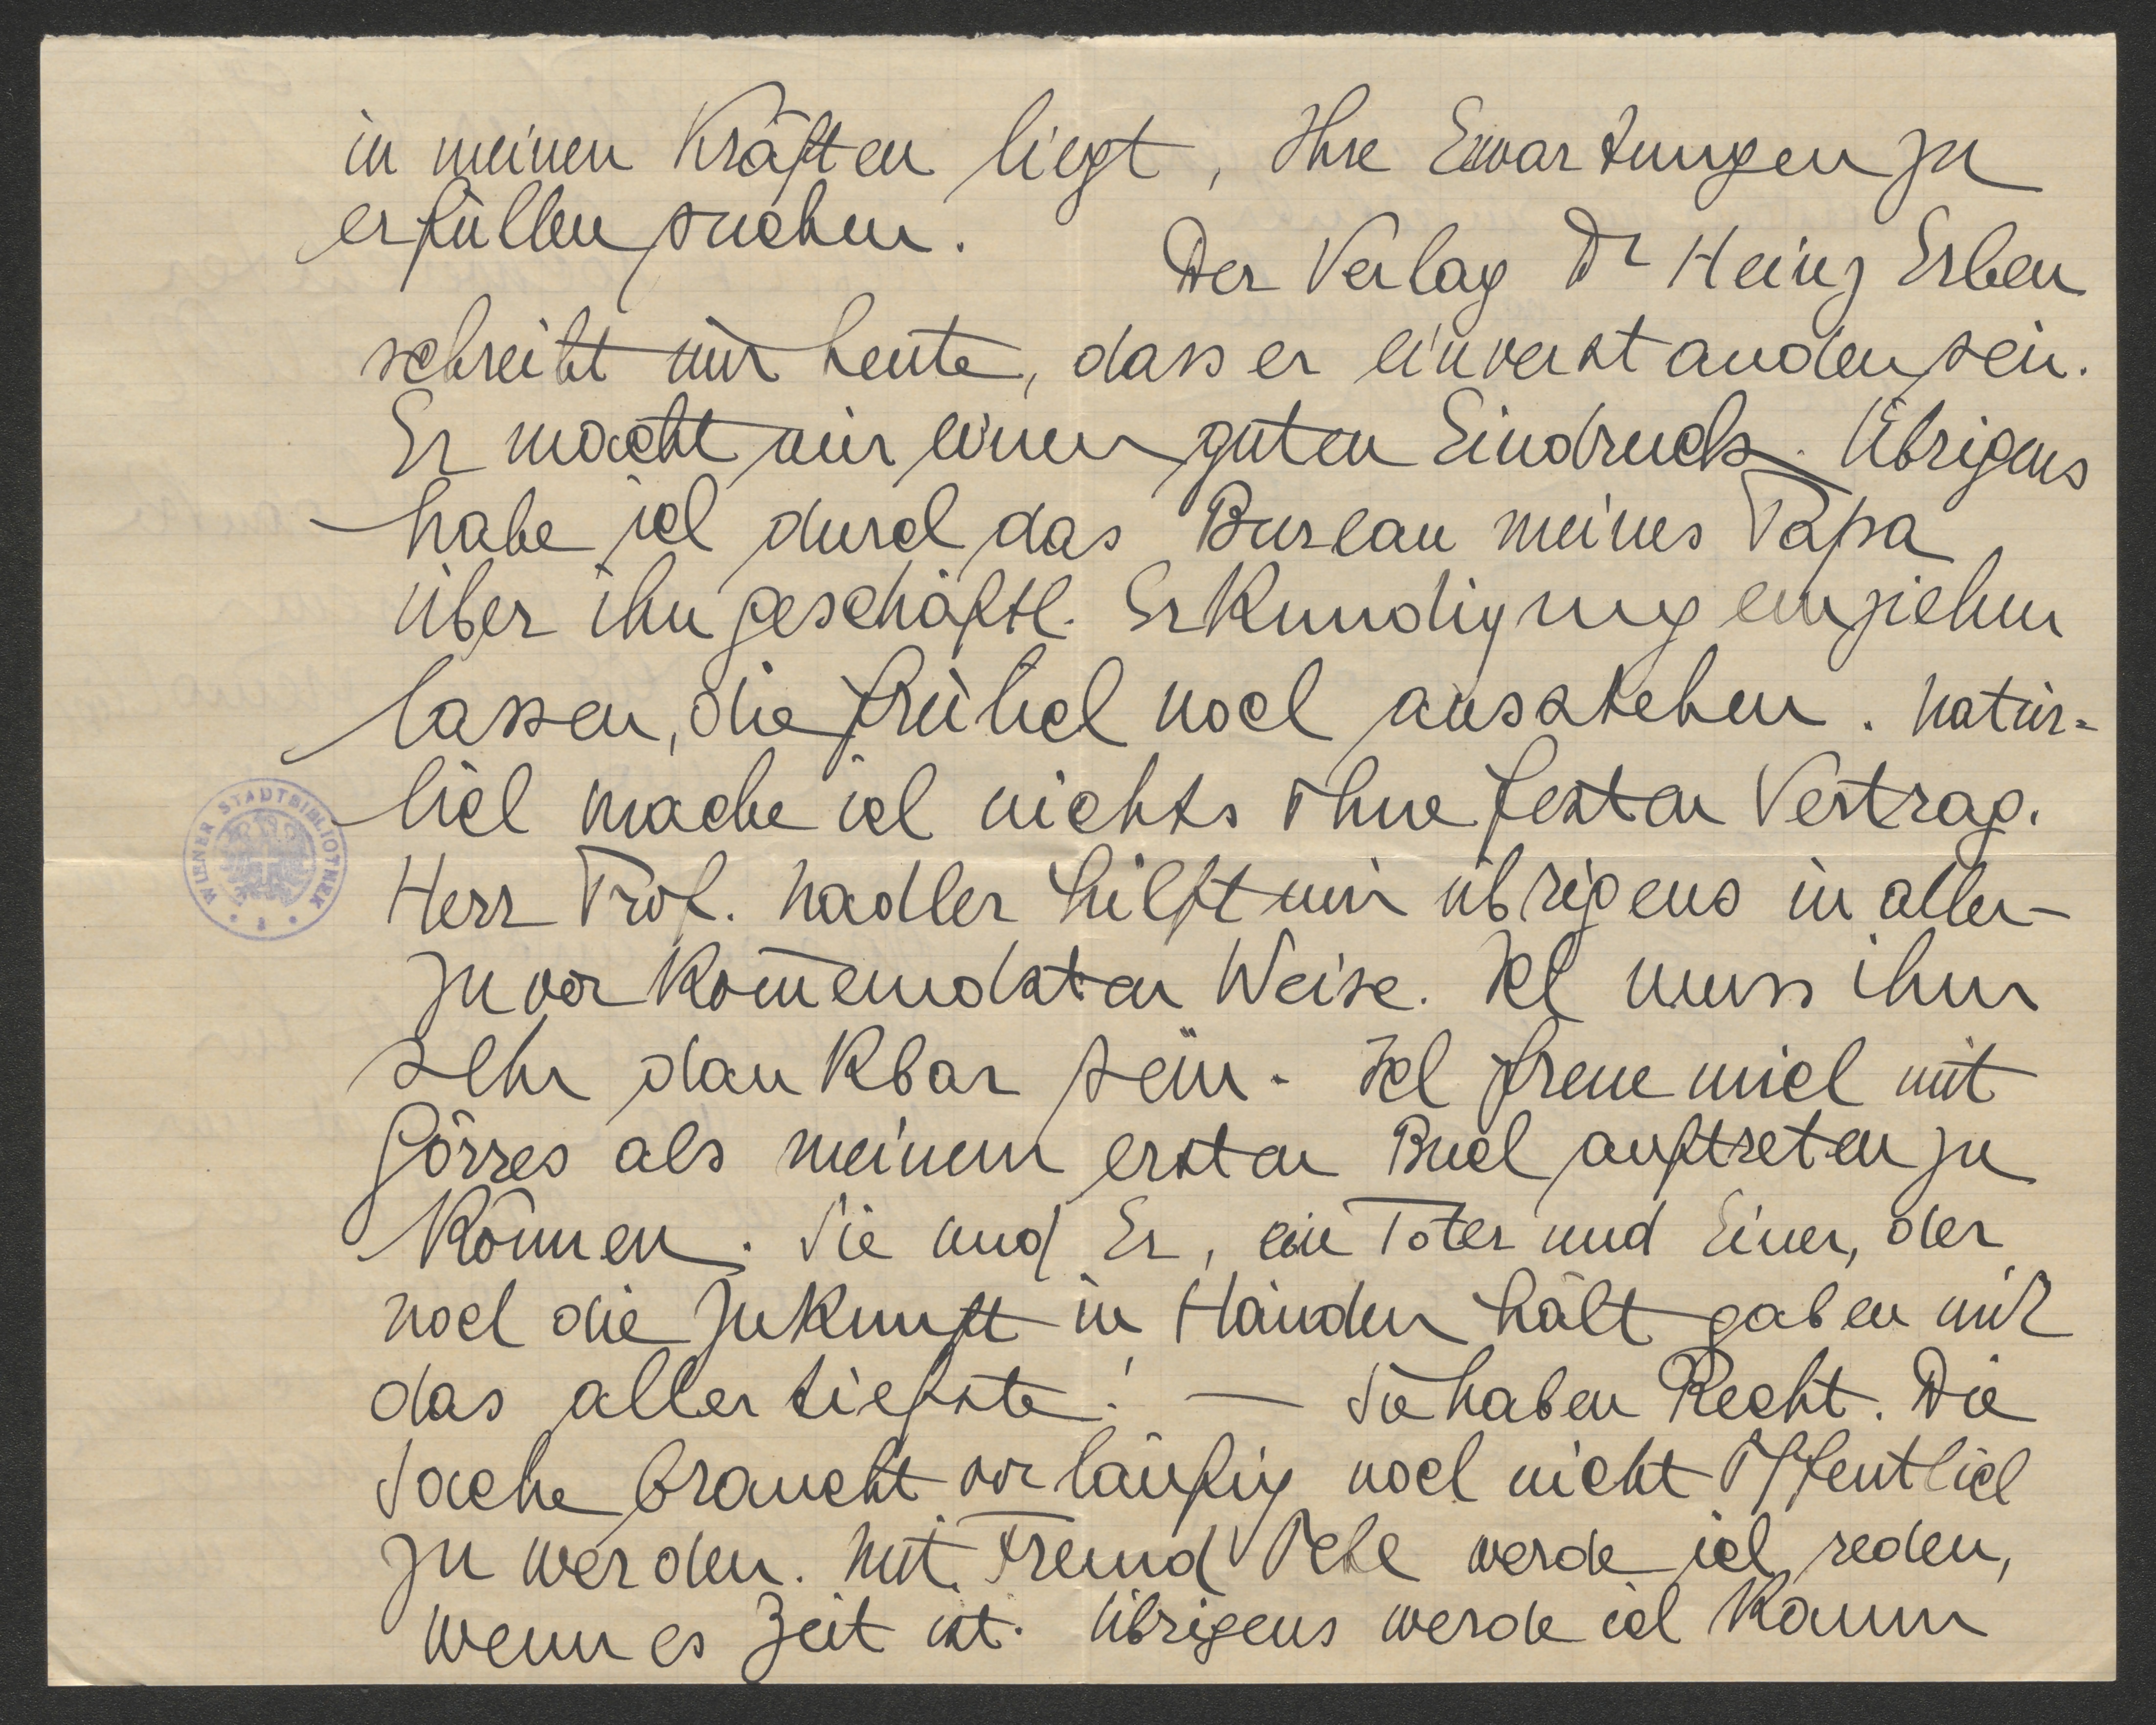 in meinen Kräften liegt, Ihre Erwartungen zu
erfüllen suchen.
Der Verlag Dr Heinz Erben
schreibt mir heute, dass er einverstanden sei.
Er macht mir einen guten Eindruck. Übrigens
habe ich durch das Bureau meines Papa
über ihn geschäftl. Erkundigung einziehen
lassen, die freilich noch ausstehen. Natür-
lich mache ich nichts ohne festen Vertrag.
Herr Prof. Nadler hilft mir übrigens in aller-
zuvorkom̄endsten Weise. Ich muss ihm
sehr dankbar sein. Ich freue mich mit
Görres als meinem ersten Buch auftreten zu
können. Sie und Er, ein Toter und Einer, der
noch die Zukunft in Händen hält gaben mir
das allertiefste! — Sie haben Recht. Die
Sache braucht vorläufig noch nicht öffentlich
zu werden. Mit Freund werde ich reden,
wenn es Zeit ist. Übrigens werde ich kaum
WIENER STADTBIBLIOTHEK